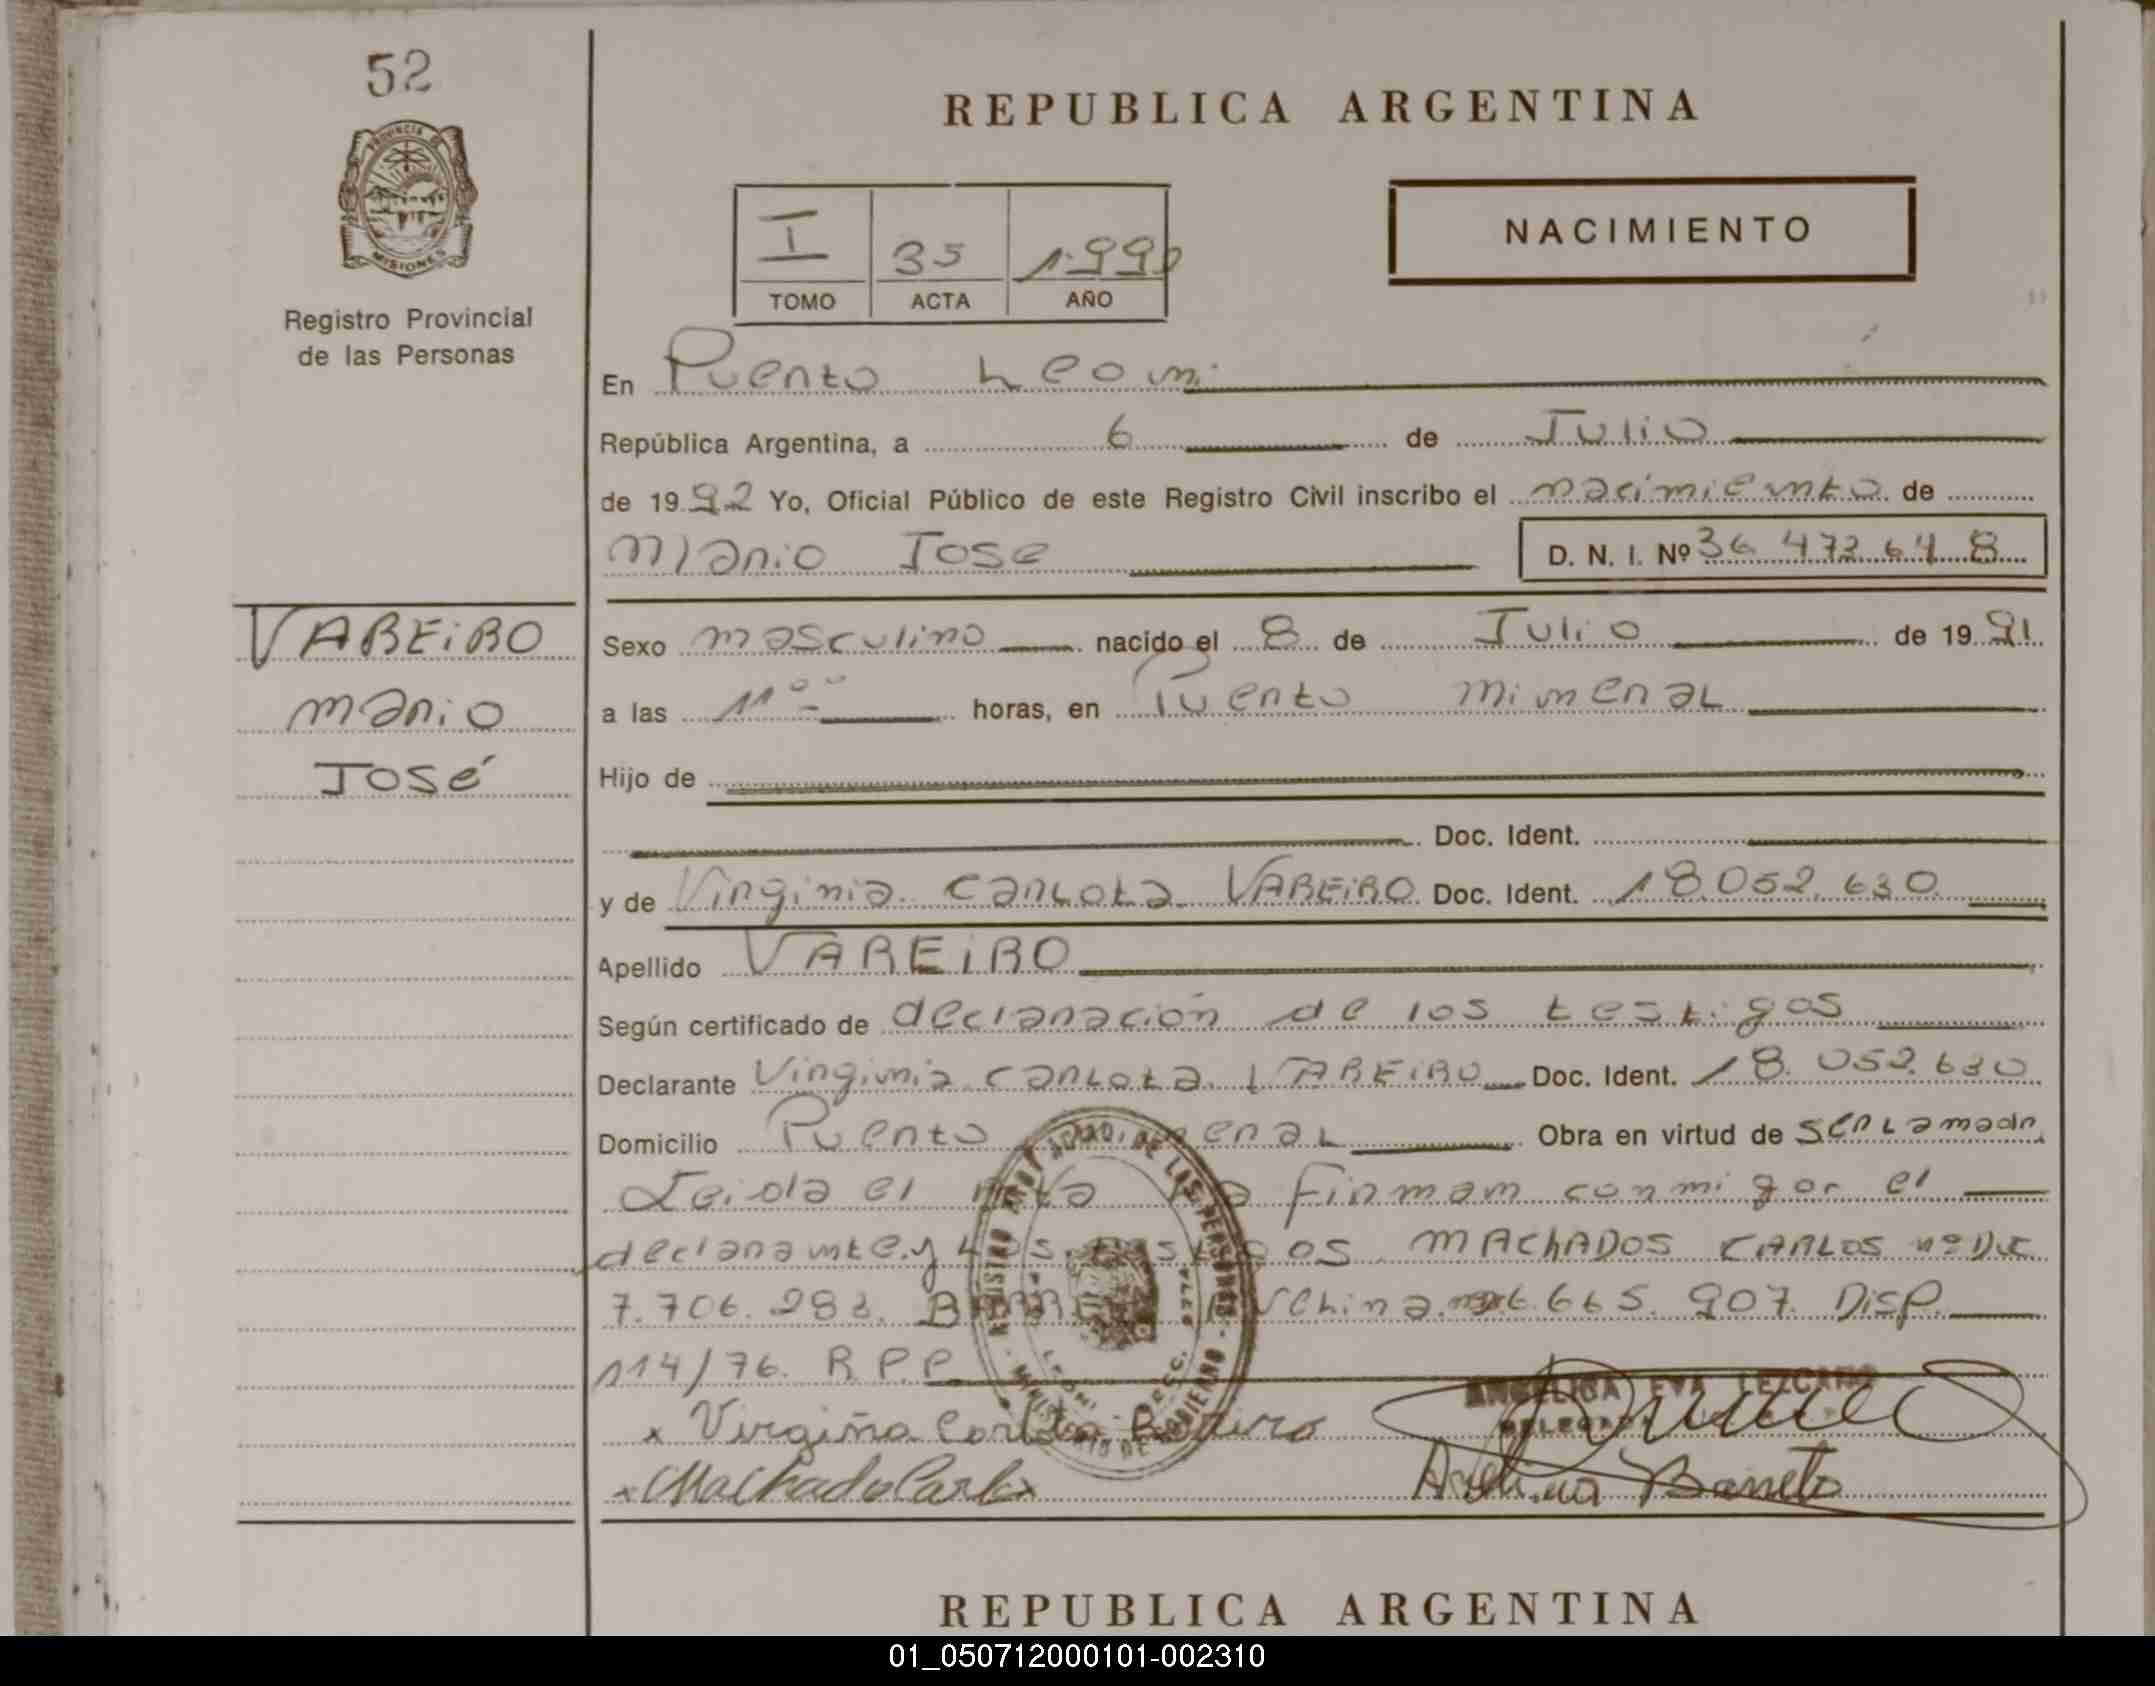 52
REPUBLICA ARGENTINA
PROVINCIA DE MISIONES
Registro Provincial
de las Personas
NACIMIENTO
I 35 1.992
TOMO ACTA AÑO
En Puerto Leoni
República Argentina, a 6 de Julio
de 1992 Yo, Oficial Público de este Registro Civil inscribo el nacimiento de
Mario Jose D. N. I. Nº 36 472 648
VAREIRO
Mario
José
Sexo masculino nacido el 8 de Julio de 1991
a las 11°° horas, en Puerto Mineral
Hijo de
Doc. Ident.
y de Virginia Carlota VAREIRO Doc. Ident. 18.052.630
Apellido VAREIRO
Según certificado de declaración de los testigos
Declarante Virginia Carlota VAREIRO Doc. Ident. 18.052.630
Domicilio Puerto Obra en virtud de ser la madre
Leida el firman conmigo el
declarante y los MACHADOS CARLOS nº Doc
7.706.283. 6.665.907 Disp.
114/76. R.P.P.
ANGELICA EVA LEZCANO
x Virgiña
x Machado Carlos Avelina Barreto
REPUBLICA ARGENTINA
01_050712000101-002310